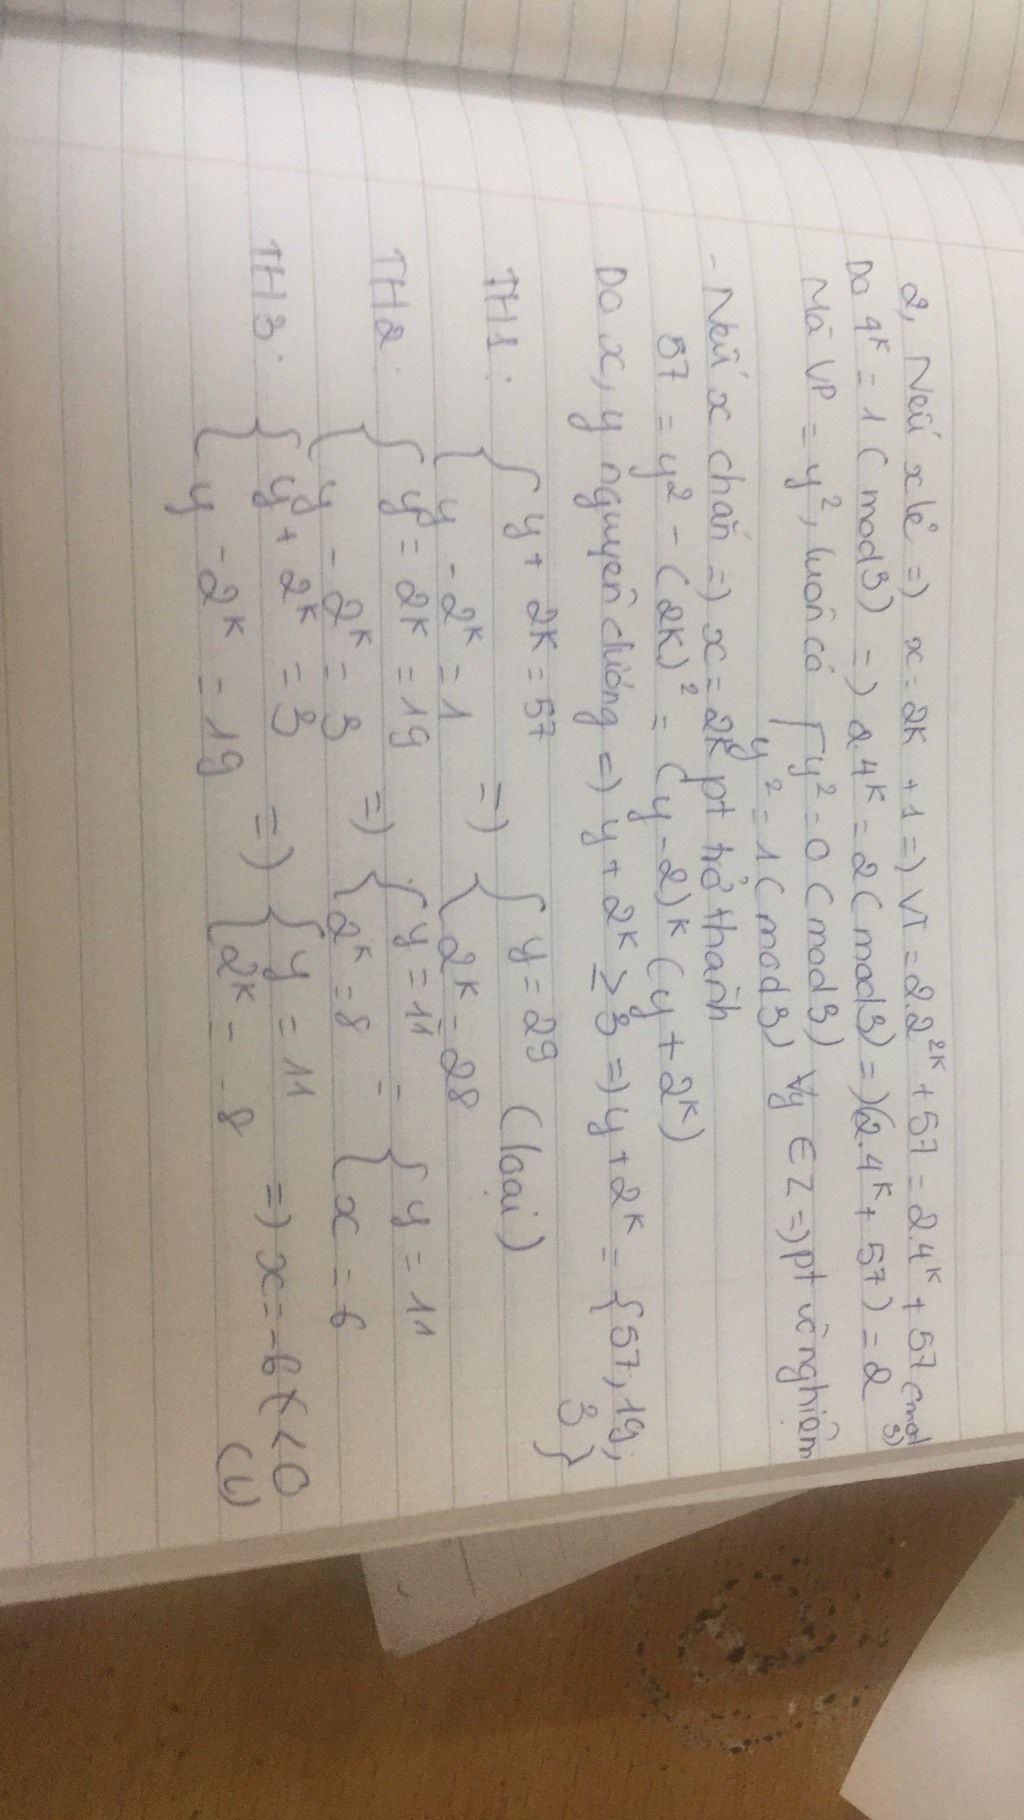 2, Nếu x lẻ => x = 2K + 1 => VT = 2.2^2K + 57 = 2.4^K + 57 (mod 3)
Do 4^K = 1 (mod 3) => 2.4^K = 2 (mod 3) => (2.4^K + 57) = 2
Mà VP = y², luôn có [ y² = 0 (mod 3)
y² = 1 (mod 3) ∀y ∈ Z => pt vô nghiệm
- Nếu x chẵn => x = 2K pt trở thành
57 = y² - (2K)² = (y - 2)^K (y + 2^K)
Do x, y nguyên dương => y + 2^K ≥ 3 => y + 2^K = {57, 19,
3}
TH1: { y + 2K = 57 => { y = 29 (loại)
{ y - 2^K = 1 { 2^K = 28
TH2: { y = 2^K = 19 => { y = 11 = { y = 11
{ y - 2^K = 3 { 2^K = 8 { x = 6
TH3: { y + 2^K = 3 => { y = 11 => x = -6 < 0
{ y - 2^K = 19 { 2^K = -8 (L)